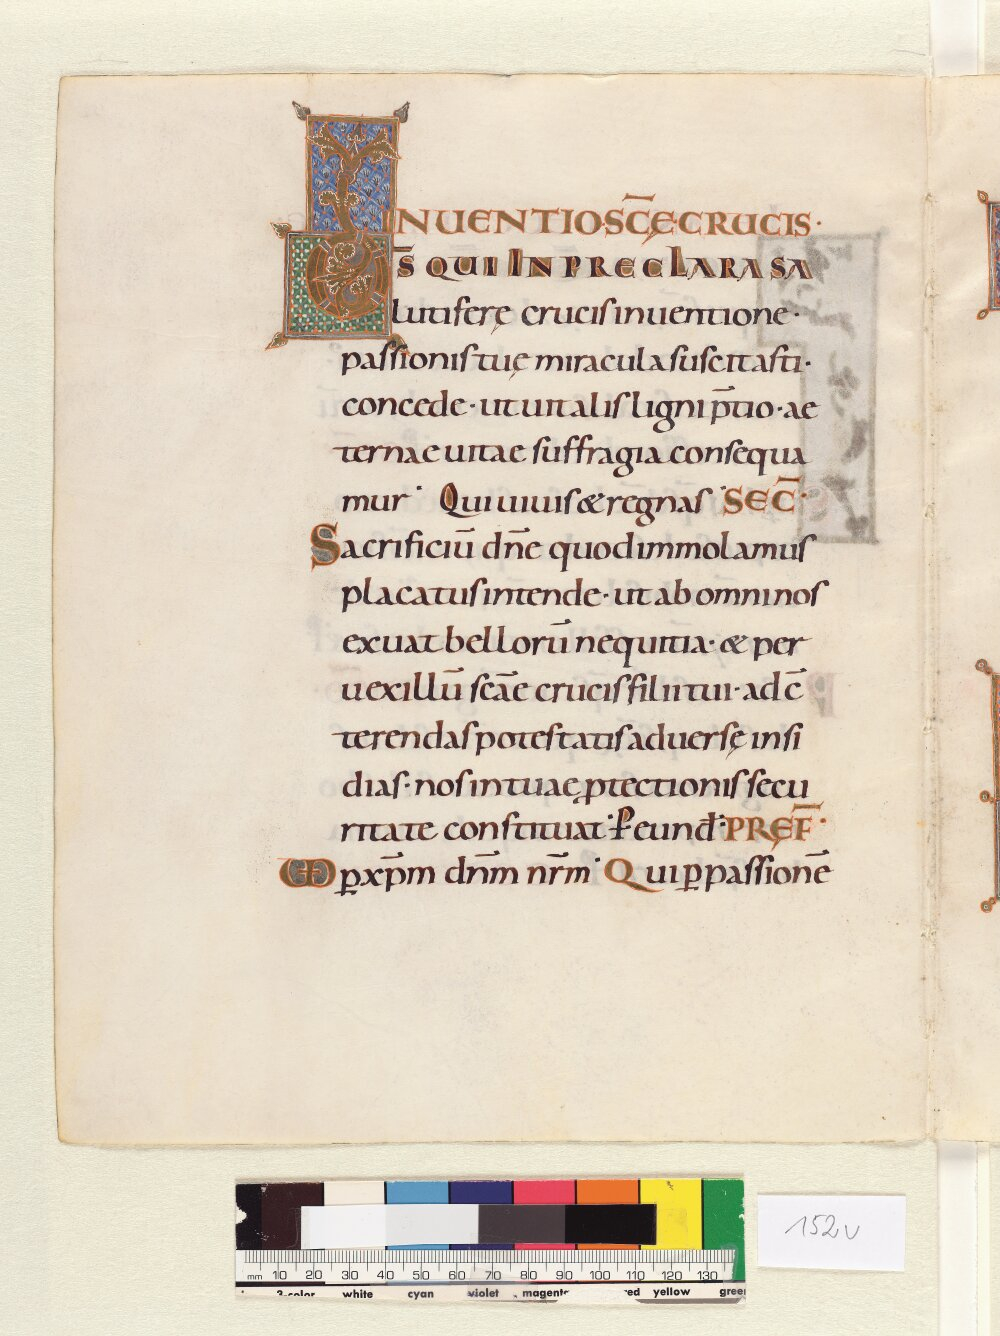 INUENTIO SC̄Ę CRUCIS·
DS̄ QUI IN PRECLARA SA
lutiferę crucis inuentione·
passionis tuę miracula suscitasti·
concede· ut uitalis ligni p̄tio· ae
ternae uitae suffragia consequa
mur· Qui uiuis & regnas· SEC̄·
Sacrificiū dn̄e quod immolamus
placatus intende· ut ab omni nos
exuat bellorū nequitia· & per
uexillū sc̄ae crucis filii tui· ad c̄
terendas potestatis aduersę insi
dias· nos in tuae ꝓtectionis secu
ritate constituat· P̄ eund̄· PRĘF̄·
UD ꝑ xp̄m dn̄m nr̄m· Qui ꝑ passionē
152v
mm 10 20 30 40 50 60 70 80 90 100 110 120 130
3-color white cyan violet magenta red yellow green